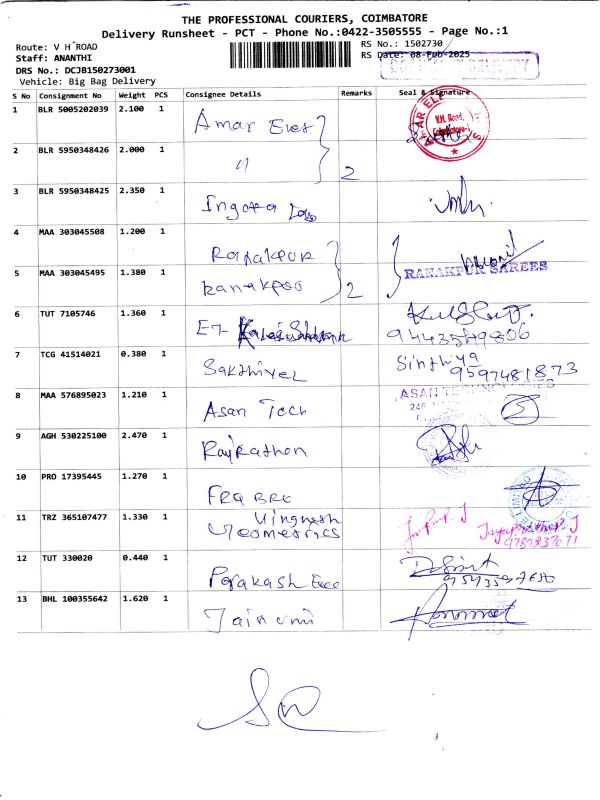 THE PROFESSIONAL COURIERS, COIMBATORE
Delivery Runsheet - PCT - Phone No.:0422-3505555 - Page No.:1
Route: V H ROAD
RS No.: 1502730
Staff: ANANTHI
RS Date: 08-Feb-2025
DRS No.: DCJB150273001
Vehicle: Big Bag Delivery
S No Consignment No Weight PCS Consignee Details Remarks Seal & Signature
1 BLR 5005202039 2.100 1 Amar Elec
V.H. Road,
2 BLR 5950348426 2.000 1 " 2
3 BLR 5950348425 2.350 1
4 MAA 303045508 1.200 1 Ranakpur
RANAKPUR SAREES
5 MAA 303045495 1.380 1 Ranakpoo 2
6 TUT 7105746 1.360 1
7 TCG 41514021 0.380 1 Sakthivel Sinthiya 9597481873
8 MAA 576895023 1.210 1 Asan Tech ASAN TECHNOLOGIES
9 AGH 530225100 2.470 1 Rajkathon
10 PRO 17395445 1.270 1
11 TRZ 365107477 1.330 1 Vingnesh
Geometrics
12 TUT 330020 0.440 1 Porakash Elec
13 BHL 100355642 1.620 1